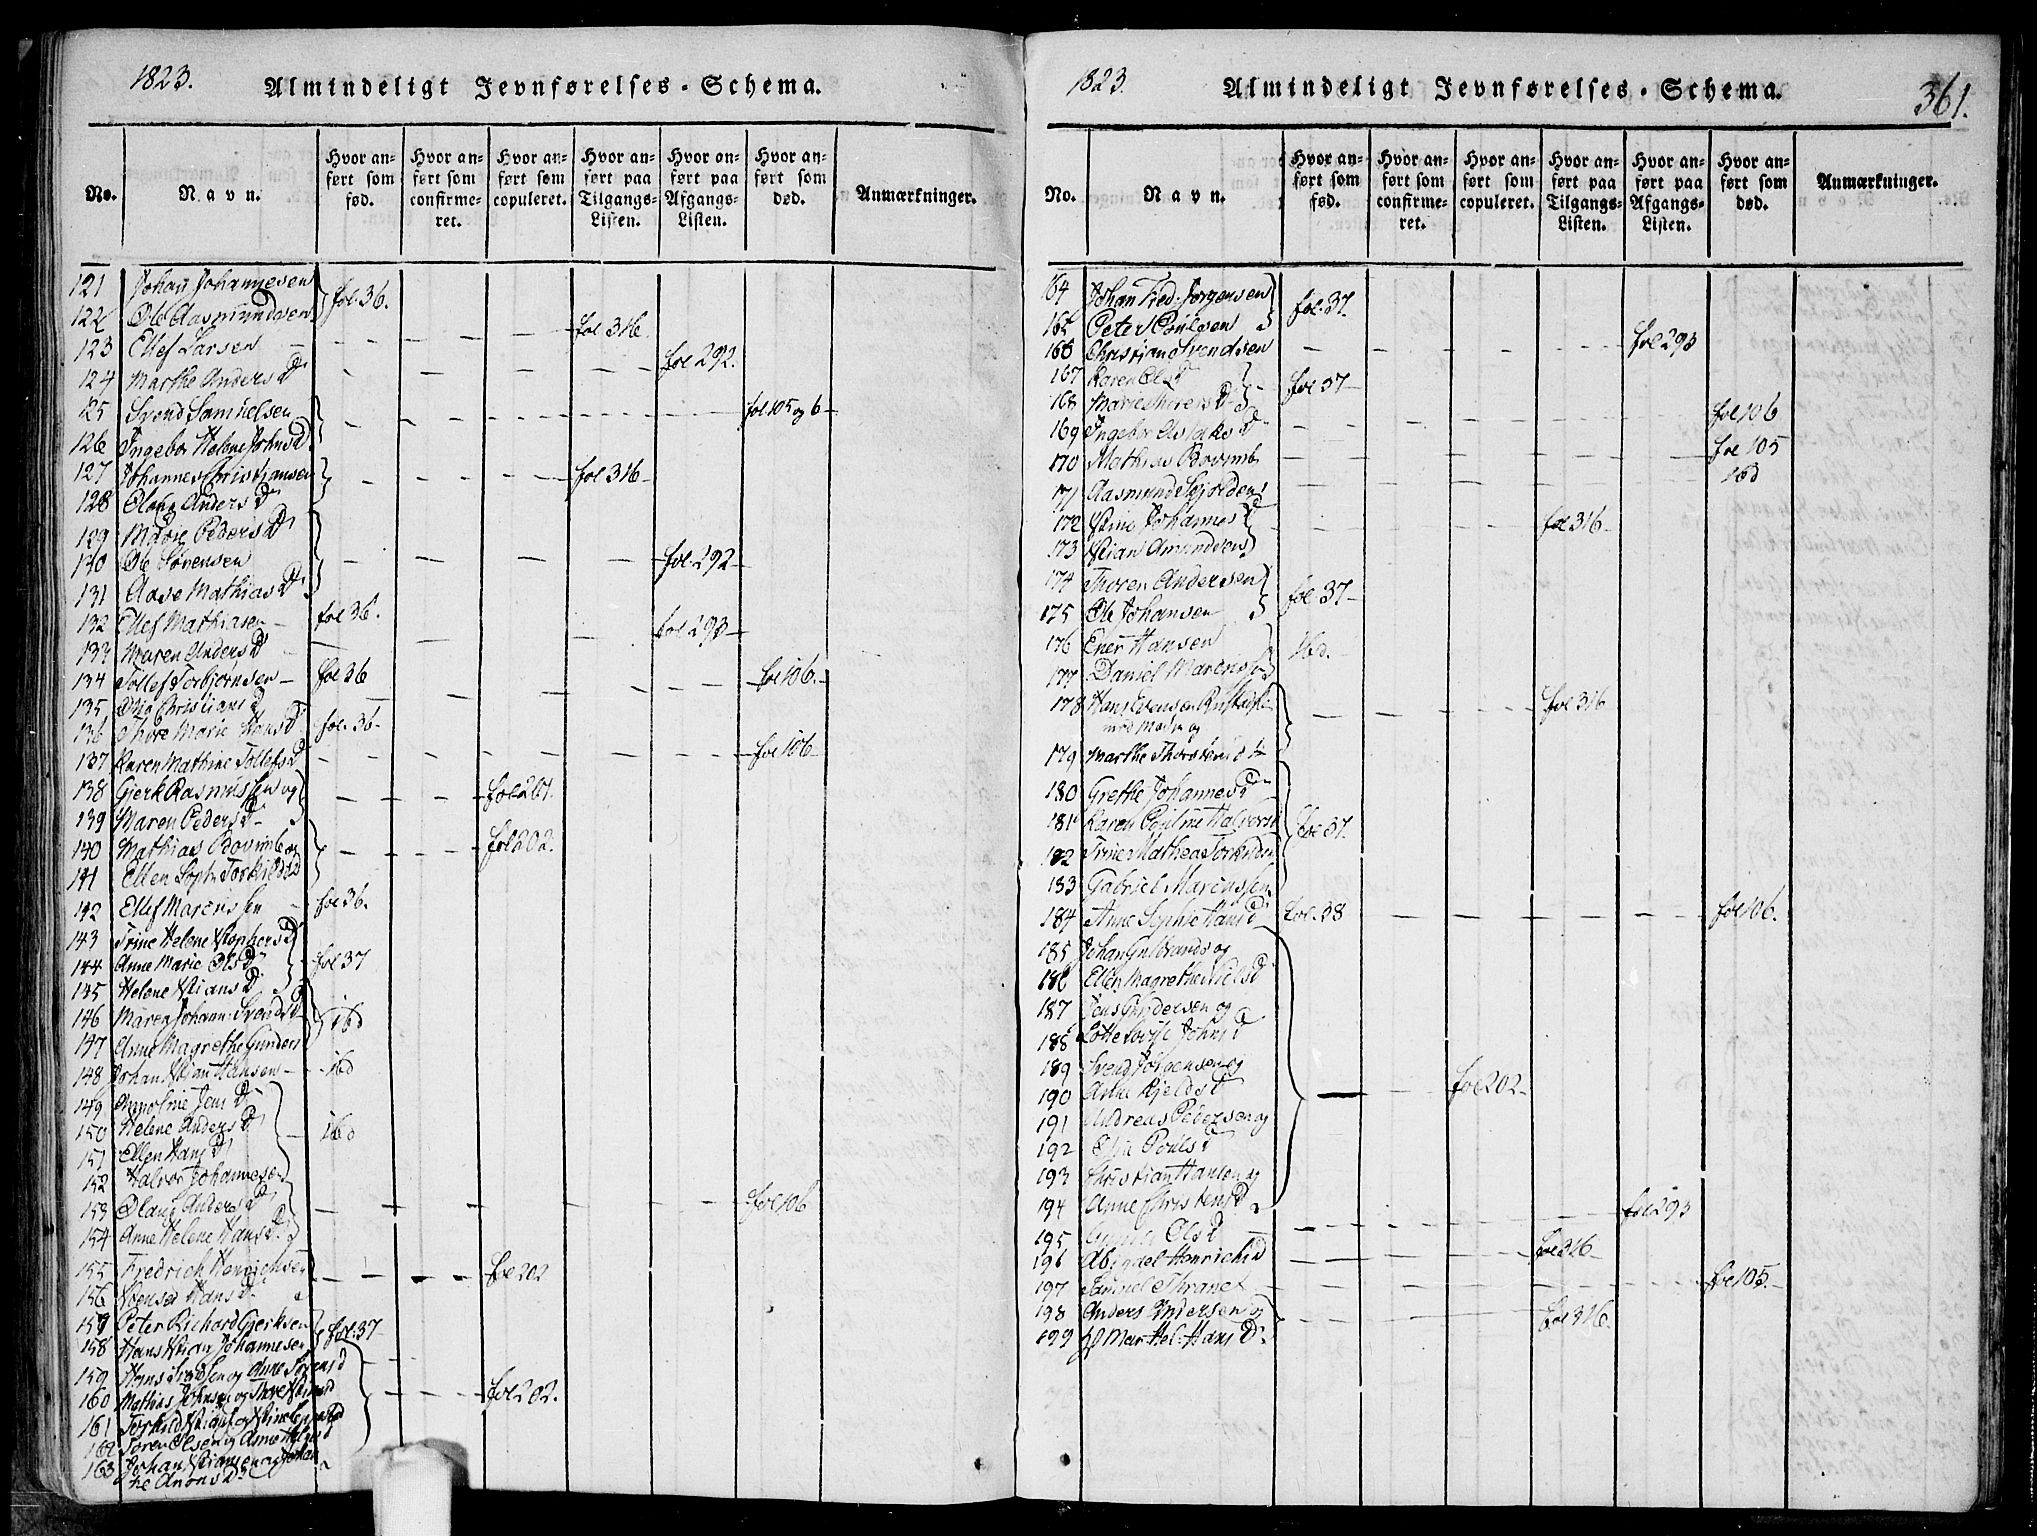 1823.
Almindeligt Jevnførelses-Schema.
No.
Navn.
Hvor anført som fød.
Hvor anført som confirmeret.
Hvor anført som copuleret.
Hvor anført paa Tilgangs-Listen.
Hvor anført paa Afgangs-Listen.
Hvor anført som død.
Anmærkninger.
121 Johan Johannesen
122 Ole Aasmundsen fol. 36.
123 Ellef Larsen fol 316
124 Marthe Anders D fol 292.
125 Svend Samuelsen
126 Ingebor Helene Johns D fol 105 og 6
127 Johannes Christiansen
128 Olaug Anders D fol 316
129 Maren Peders D
130 Ole Sørensen fol. 292
131 Aase Mathias D
132 Ellef Mathiasen fol 36.
133 Maren Anders D fol 293
134 Tollef Torbjørnsen fol 36
135 Christians D fol 106.
136 Thore Marie Hans D fol. 36
137 Karen Mathine Tollefs D fol 106
138 Gjerk Rasmussen og
139 Maren Peders D fol 201.
140 Mathias Bovimb og
141 Ellen Soph: Torkilds D fol 202.
142 Ellef Marcussen fol 36.
143 Trine Helene Stophers D
144 Anne Marie Ols D fol 37
145 Helene Stians D
146 Maren Johann: Svends D
147 Anne Magrethe Gunders ibd
148 Johan Stian Hansen ibd
149 Jens D
150 Helene Anders D ibd
151 Ellen Hans D
152 Halvor Johannesen
153 Olaug Anders D fol 106
154 Anne Helene Hans D
155 Fredrich Henrichsen
156 Hans D fol 202
157 Peter Richard Gjerksen
158 Hans Stian Johannesen fol. 37
159 Hans og Anne Sørens D
160 Mathis Johnsen og Thore fol 202.
161 Torkild
162 Søren Olsen og Anne D
163 Johan Stiansen og Johanne Anons D
1823.
Almindeligt Jevnførelses-Schema.
361.
No.
Navn.
Hvor anført som fød.
Hvor anført som confirmeret.
Hvor anført som copuleret.
Hvor anført paa Tilgangs-Listen.
Hvor anført paa Afgangs-Listen.
Hvor anført som død.
Anmærkninger.
164 Johan Fred: Jørgensen
165 Peter Poulsen fol. 37.
166 Christian Svendsen fol 293
167 Karen Ols D
168 Marie D fol 37
169 Ingebor Aslaks D fol 106
170 Mathias Bovimb fol 105
171 Aasmund ibd
172 Stine Johannes D
173 Stian Amundsen fol 316
174 Thoren Andersen
175 Ole Johansen fol. 37
176 Ener Hansen
177 Daniel Marcuss ibd.
178 Hans
med Moder og fol 316
179 Marthe Thorstens D
180 Grethe Johannes D
181 Karen Pouline Halvors fol 37.
182 Trine Mathea Torkilds
183 Gabriel Marcussen
184 Anne Sophie Hans D fol. 38 fol 106.
185 Johan Gulbrands og
186 Ellen Magrethe Niels D
187 Jens Gundersen og
188 Lotte Lovise Johns D
189 Svend Jørgensen og
190 Anne Kjelds D fol 202
191 Andreas Pedersen og
192 Poüls D
193 Christian Hansen og
194 Anne Christens D
195 Ols D fol 293
196 Abigael Henrichs D fol 316
197 Samuel Thrane fol 105.
198 Anders Andersen og
199 Mar: Hel: Hans D fol 316.